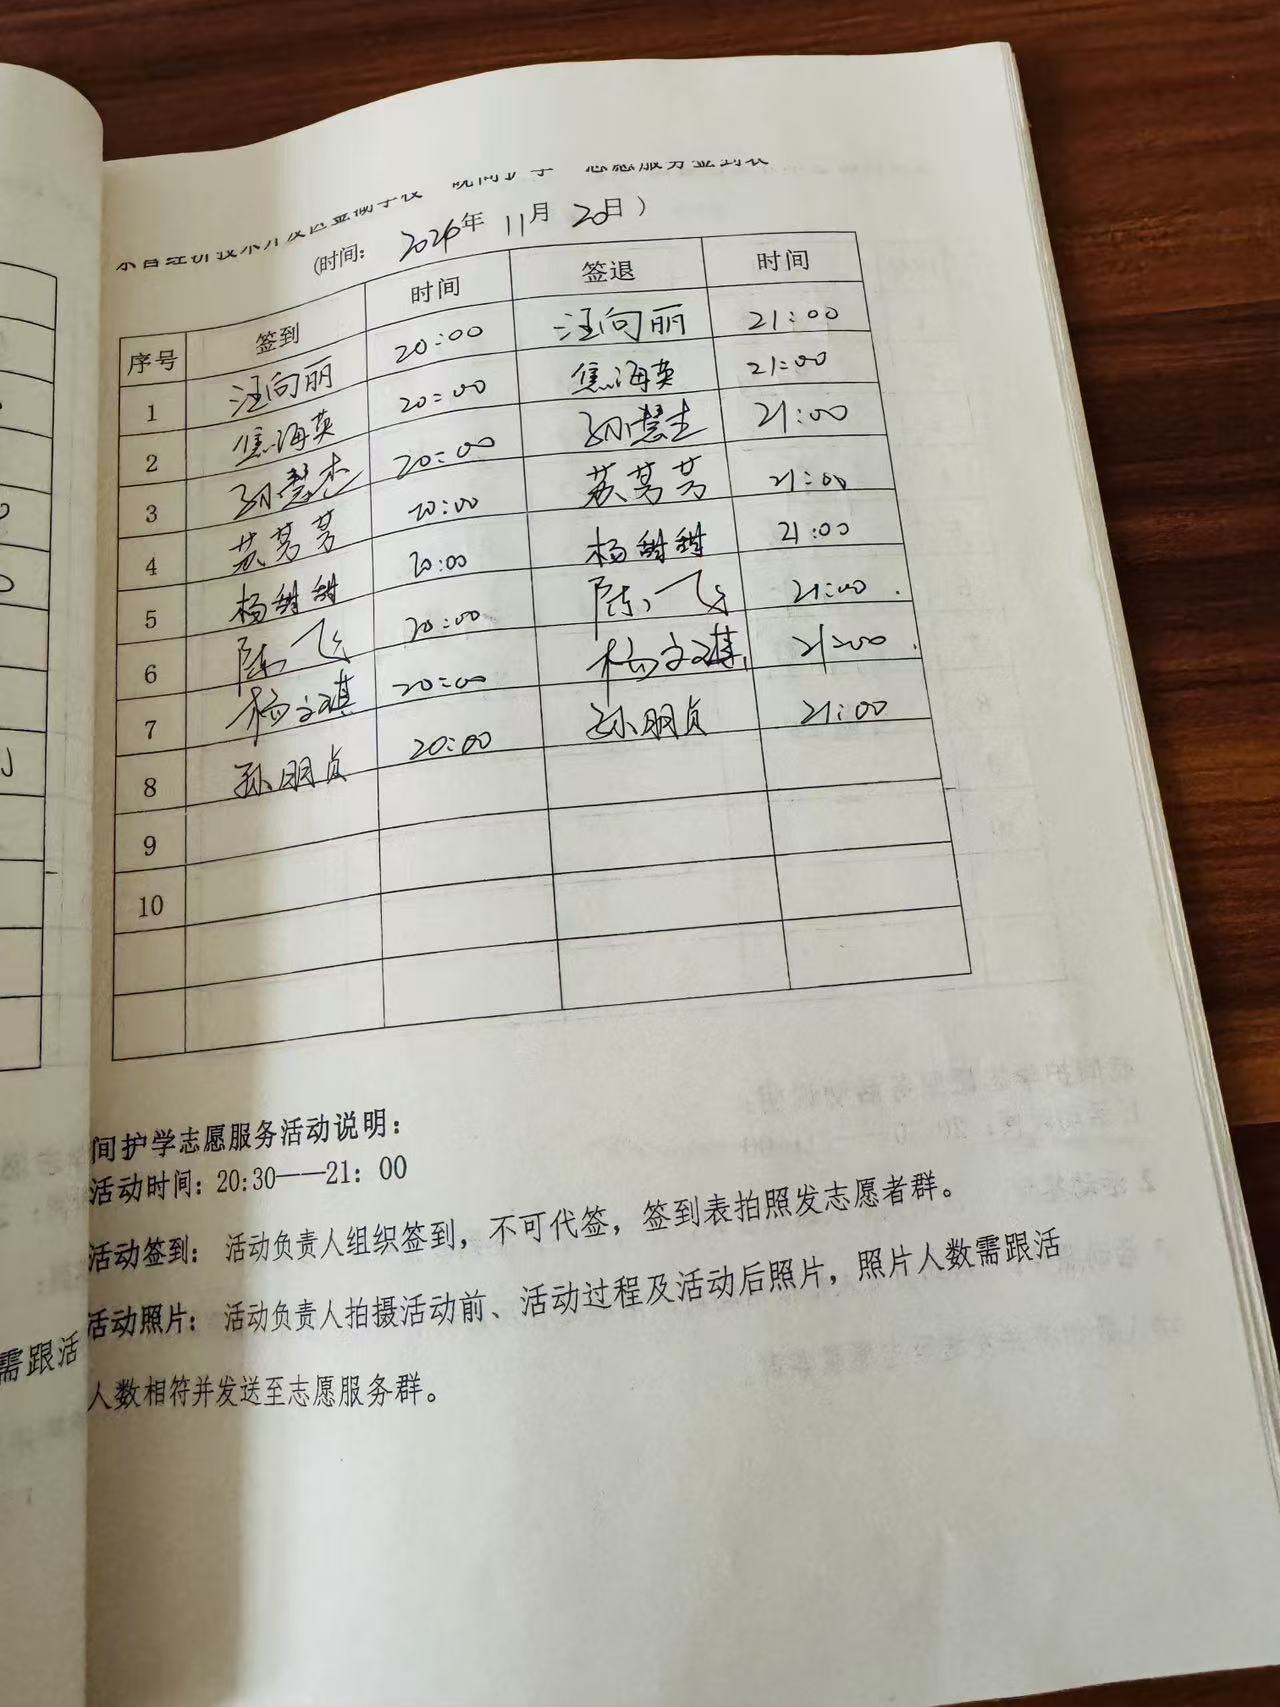 (时间: 2026年 11月 20日)
序号 签到 时间 签退 时间
1 汪向丽 20:00 汪向丽 21:00
2 焦海英 20:00 焦海英 21:00
3 孙慧杰 20:00 孙慧杰 21:00
4 苏茑茑 20:00 苏茑茑 21:00
5 杨甜甜 20:00 杨甜甜 21:00
6 陈飞 20:00 陈飞 21:00
7 杨文琪 20:00 杨文琪 21:00
8 孙朋贞 20:00 孙朋贞 21:00
9
10
间护学志愿服务活动说明:
活动时间: 20:30——21: 00
活动签到: 活动负责人组织签到, 不可代签, 签到表拍照发志愿者群。
活动照片: 活动负责人拍摄活动前、活动过程及活动后照片, 照片人数需跟活
人数相符并发送至志愿服务群。
需跟活